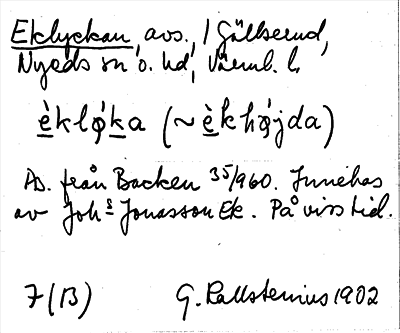 Eklyckan, avs., / Gällserud,
Nyeds sn o. hd, Värml. l.
è̱klǫ́ḵa (~ è̱khǫ́jda)
Av. från Backen 35/960. Innehas
av Johs Jonasson Ek. På viss tid.
7 (13) G. Kallstenius 1902